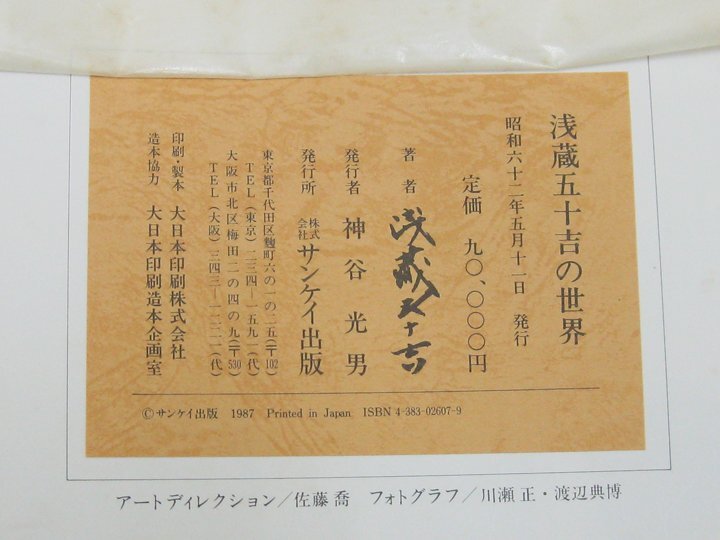 浅蔵五十吉の世界
昭和六十二年五月十一日 発行
定価 九〇、〇〇〇円
著者 浅蔵五十吉
発行者 神谷光男
発行所 株式会社サンケイ出版
東京都千代田区麹町六の一の二五(〒102)
TEL(東京)二三四―一五九一(代)
大阪市北区梅田二の四の九(〒530)
TEL(大阪)三四三―一二二一(代)
印刷・製本 大日本印刷株式会社
造本協力 大日本印刷造本企画室
©サンケイ出版 1987 Printed in Japan ISBN 4-383-02607-9
アートディレクション/佐藤喬 フォトグラフ/川瀬正・渡辺典博